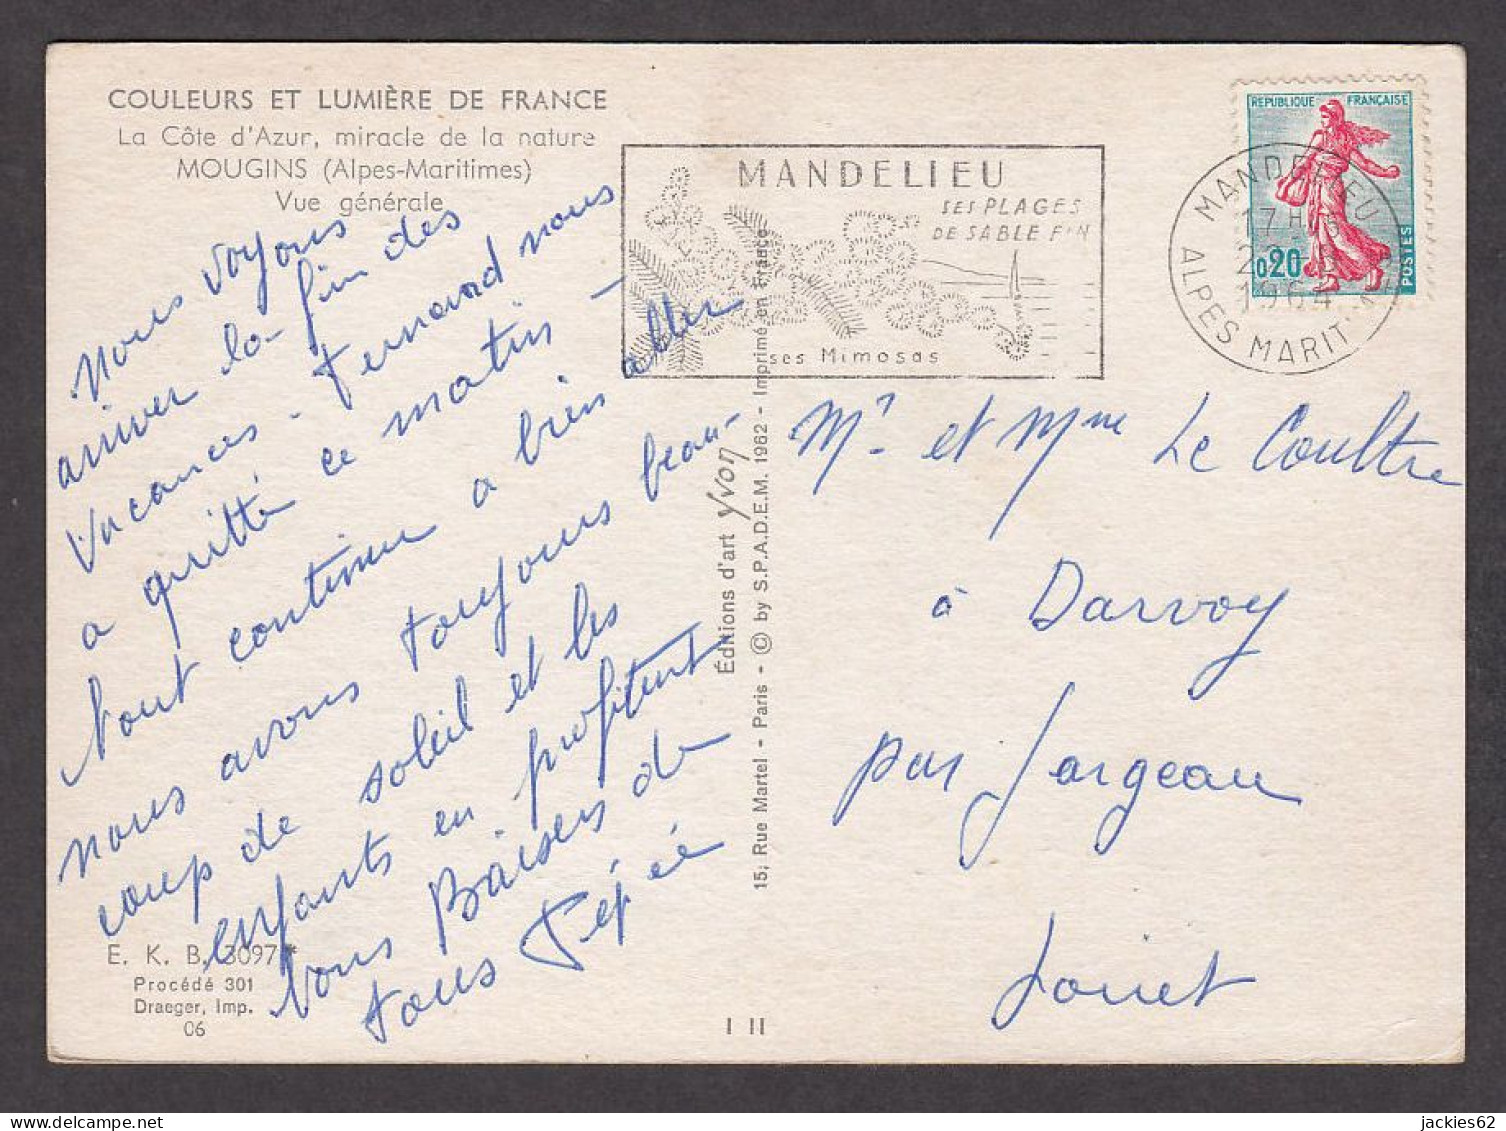 COULEURS ET LUMIÈRE DE FRANCE
La Côte d'Azur, miracle de la nature
MOUGINS (Alpes-Maritimes)
Vue générale
Nous voyons
arriver la fin des
vacances. Fernand nous
a quitté ce matin —
tout continue a bien aller
nous avons toujours beau-
coup de soleil et les
enfants en profitent
Vous Baisers de
tous Pépée
E. K. B. 3097 *
Procédé 301
Draeger, Imp.
06
I II
Éditions d'art Yvon
15, Rue Martel - Paris - © by S.P.A.D.E.M. 1962 - Imprimé en France
MANDELIEU
SES PLAGES
DE SABLE FIN
ses Mimosas
REPUBLIQUE FRANÇAISE
0,20
POSTES
MANDELIEU
17 H
1964
ALPES MARIT
Mr. et Mme Le Coultre
à Darvoy
par Jargeau
Loiret
jackies62